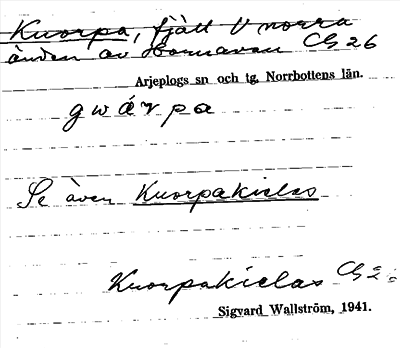 Kuorpa, fjäll V norra
änden av Hornavan Cg 26
Arjeplogs sn och tg, Norrbottens län.
gwárpa
Se även Kuorpakielas
Kuorpakielas Cg 2
Sigvard Wallström, 1941.